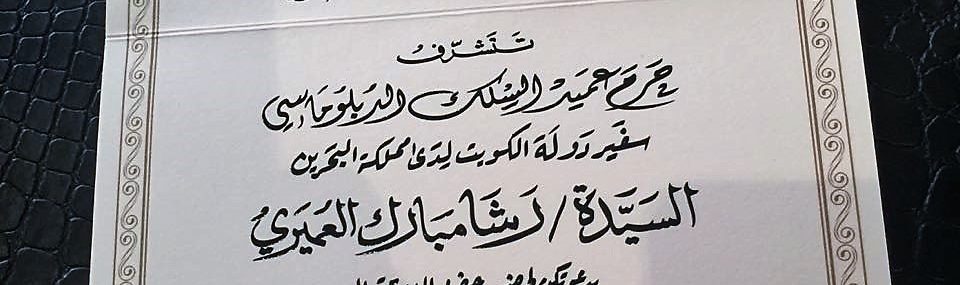 تتشرف
حرم عميد السلك الدبلوماسي
سفير دولة الكويت لدى مملكة البحرين
السيدة / رشا مبارك العميري